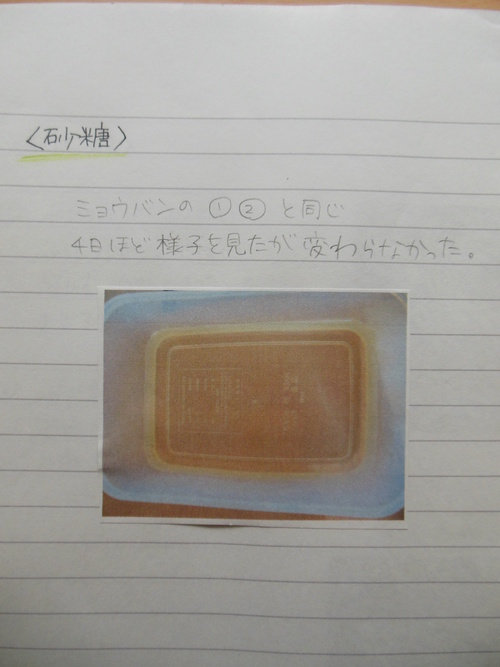 〈砂糖〉
ミョウバンの ① ② と同じ
4日ほど様子を見たが変わらなかった。